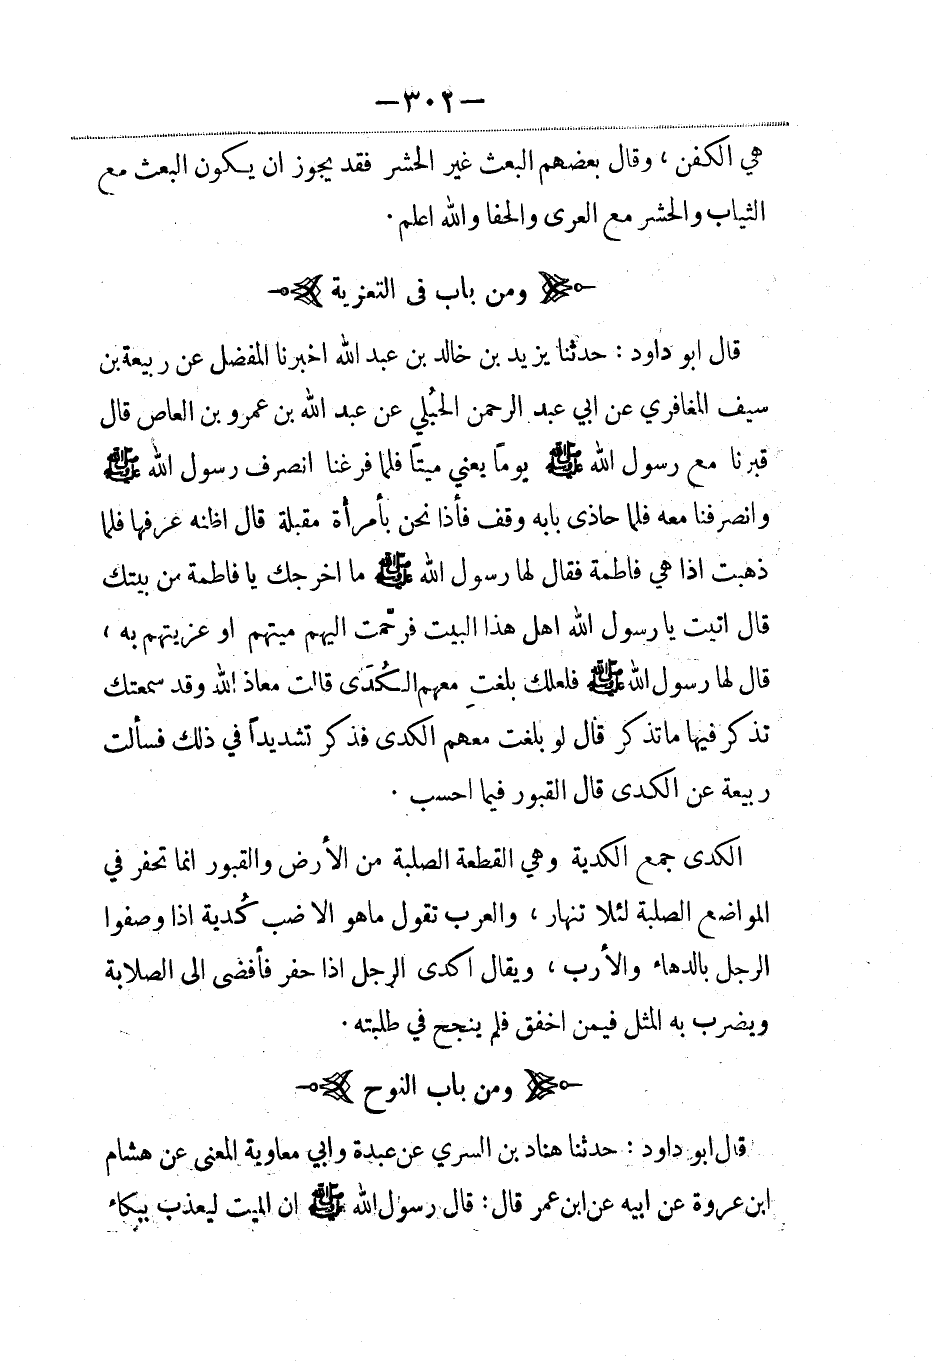 —٣٠٢—
هي الكفن ، وقال بعضهم البعث غير الحشر فقد يجوز ان يكون البعث مع
الثياب والحشر مع العرى والحفا والله اعلم .
ومن باب فى التعزية
قال ابو داود : حدثنا يزيد بن خالد بن عبد الله اخبرنا المفضل عن ربيعة بن
سيف المغافري عن ابي عبد الرحمن الحُبُلي عن عبد الله بن عمرو بن العاص قال
قبرنا مع رسول الله ﷺ يوماً يعني ميتاً فلما فرغنا انصرف رسول الله ﷺ
وانصرفنا معه فلما حاذى بابه وقف فأذا نحن بأمرأة مقبلة قال اظنه عرفها فلما
ذهبت اذا هي فاطمة فقال لها رسول الله ﷺ ما اخرجك يا فاطمة من بيتك
قال اتيت يا رسول الله اهل هذا البيت فرحّمت اليهم ميتهم او عزيتهم به ،
قال لها رسول الله ﷺ فلعلك بلغت معهم الكُدَى قالت معاذ الله وقد سمعتك
تذكر فيها ما تذكر قال لو بلغت معهم الكدى فذكر تشديداً في ذلك فسألت
ربيعة عن الكدى قال القبور فيما احسب .
الكدى جمع الكدية وهي القطعة الصلبة من الأرض والقبور انما تحفر في
المواضع الصلبة لئلا تنهار ، والعرب تقول ماهو الا ضب كُدية اذا وصفوا
الرجل بالدهاء والأرب ، ويقال اكدى الرجل اذا حفر فأفضى الى الصلابة
ويضرب به المثل فيمن اخفق فلم ينجح في طلبته .
ومن باب النوح
قال ابو داود : حدثنا هناد بن السري عن عبدة وابي معاوية المعنى عن هشام
ابن عروة عن ابيه عن ابن عمر قال : قال رسول الله ﷺ ان الميت ليعذب ببكاء